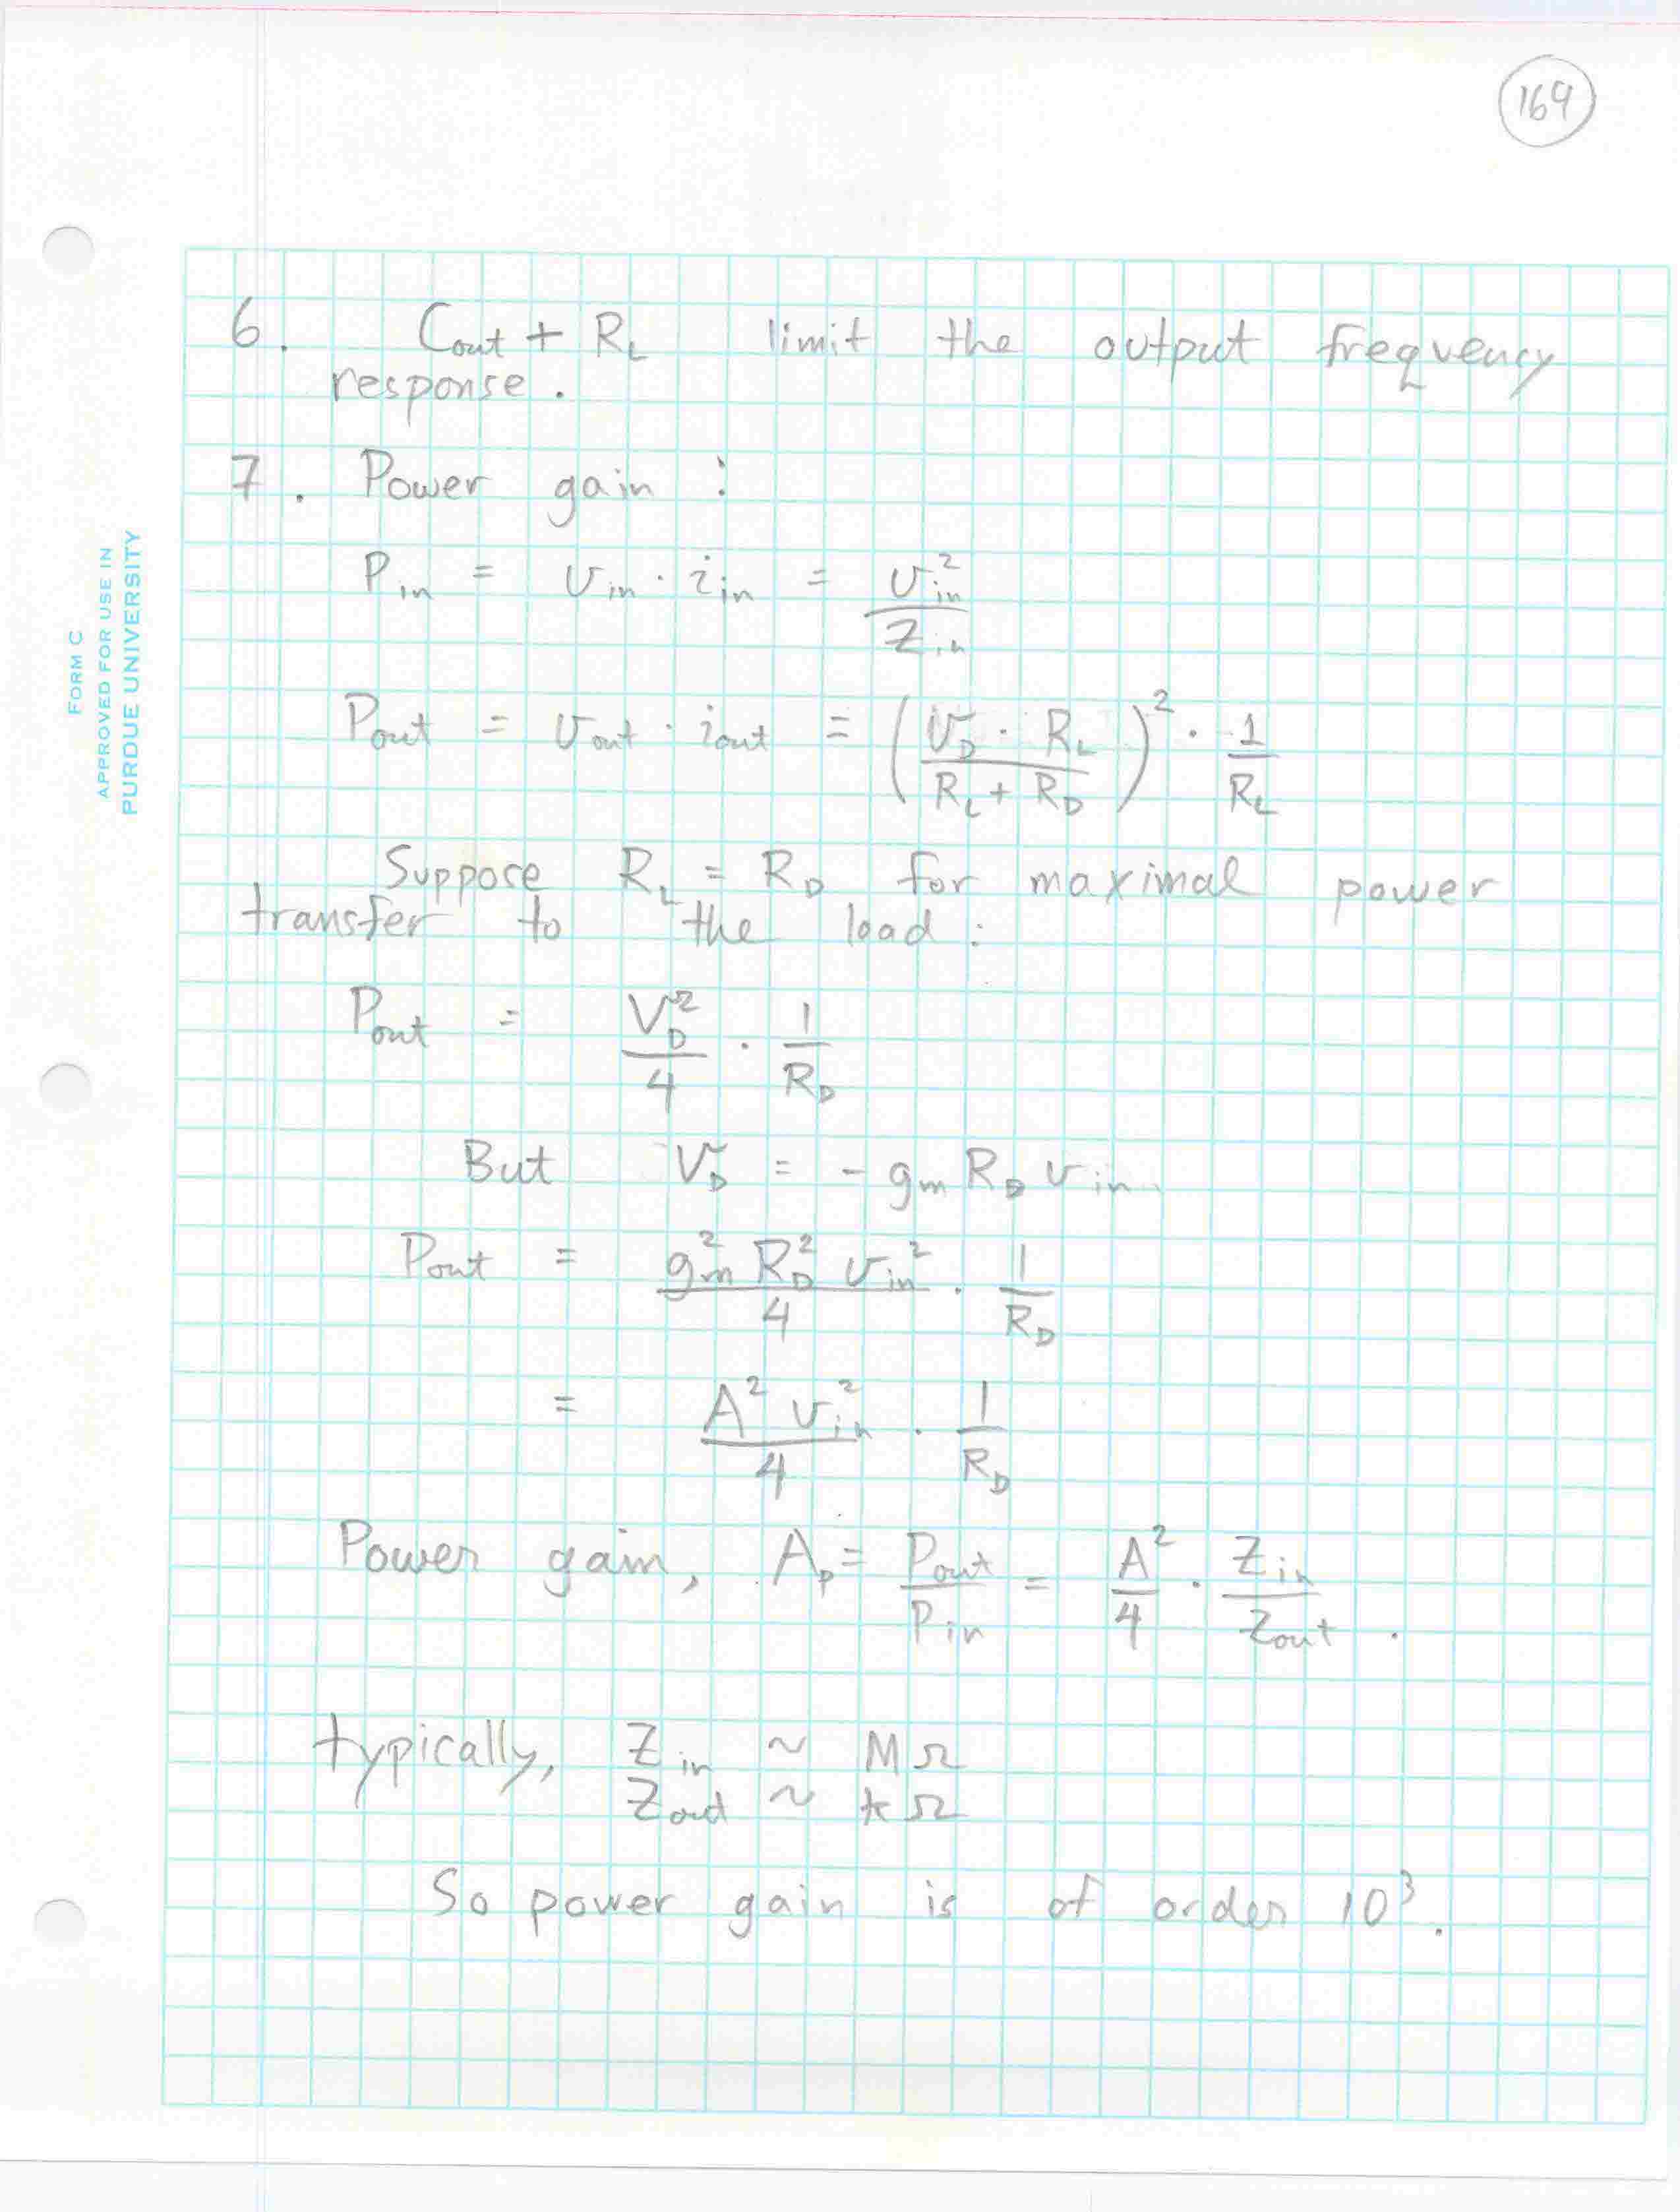 169
FORM C
APPROVED FOR USE IN
PURDUE UNIVERSITY
6. Cout + RL limit the output frequency
response.
7. Power gain :
Pin = vin · iin = vin² / Zin
Pout = vout · iout = (vD · RL / (RL + RD))² · 1/RL
Suppose RL = RD for maximal power
transfer to the load :
Pout = vD²/4 · 1/RD
But vD = - gm RD vin
Pout = gm² RD² vin² / 4 · 1/RD
= A² vin² / 4 · 1/RD
Power gain, Ap = Pout/Pin = A²/4 · Zin/Zout .
typically, Zin ~ MΩ
Zout ~ kΩ
So power gain is of order 10³.